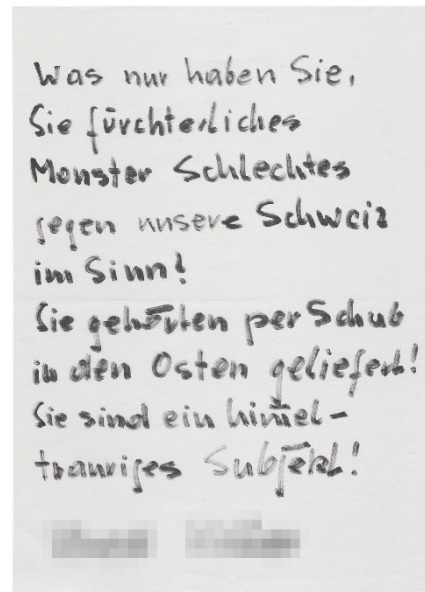 Was nur haben Sie,
Sie fürchterliches
Monster Schlechtes
gegen unsere Schweiz
im Sinn?
Sie gehörten per Schub
in den Osten geliefert!
Sie sind ein him̄el-
trauriges Subjekt!